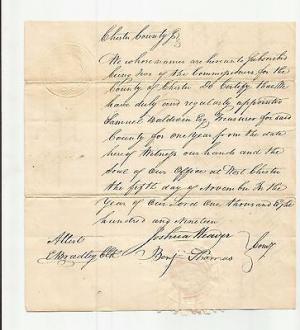 Chester County Ss
We whose names are hereunto Subscribed
being two of the Commissioners for the
County of Chester Do Certify that We
have duly and regularly appointed
Samuel Baldwin Esq Treasurer for said
County for one Year from the date
hereof Witness our hands and the
Seal of our Office at West Chester
the fifth day of November In the
Year of Our Lord One thousand Eight
hundred and Nineteen
Attest
Joshua Weaver
Bradley Clk
Benj Thomas
Comrs